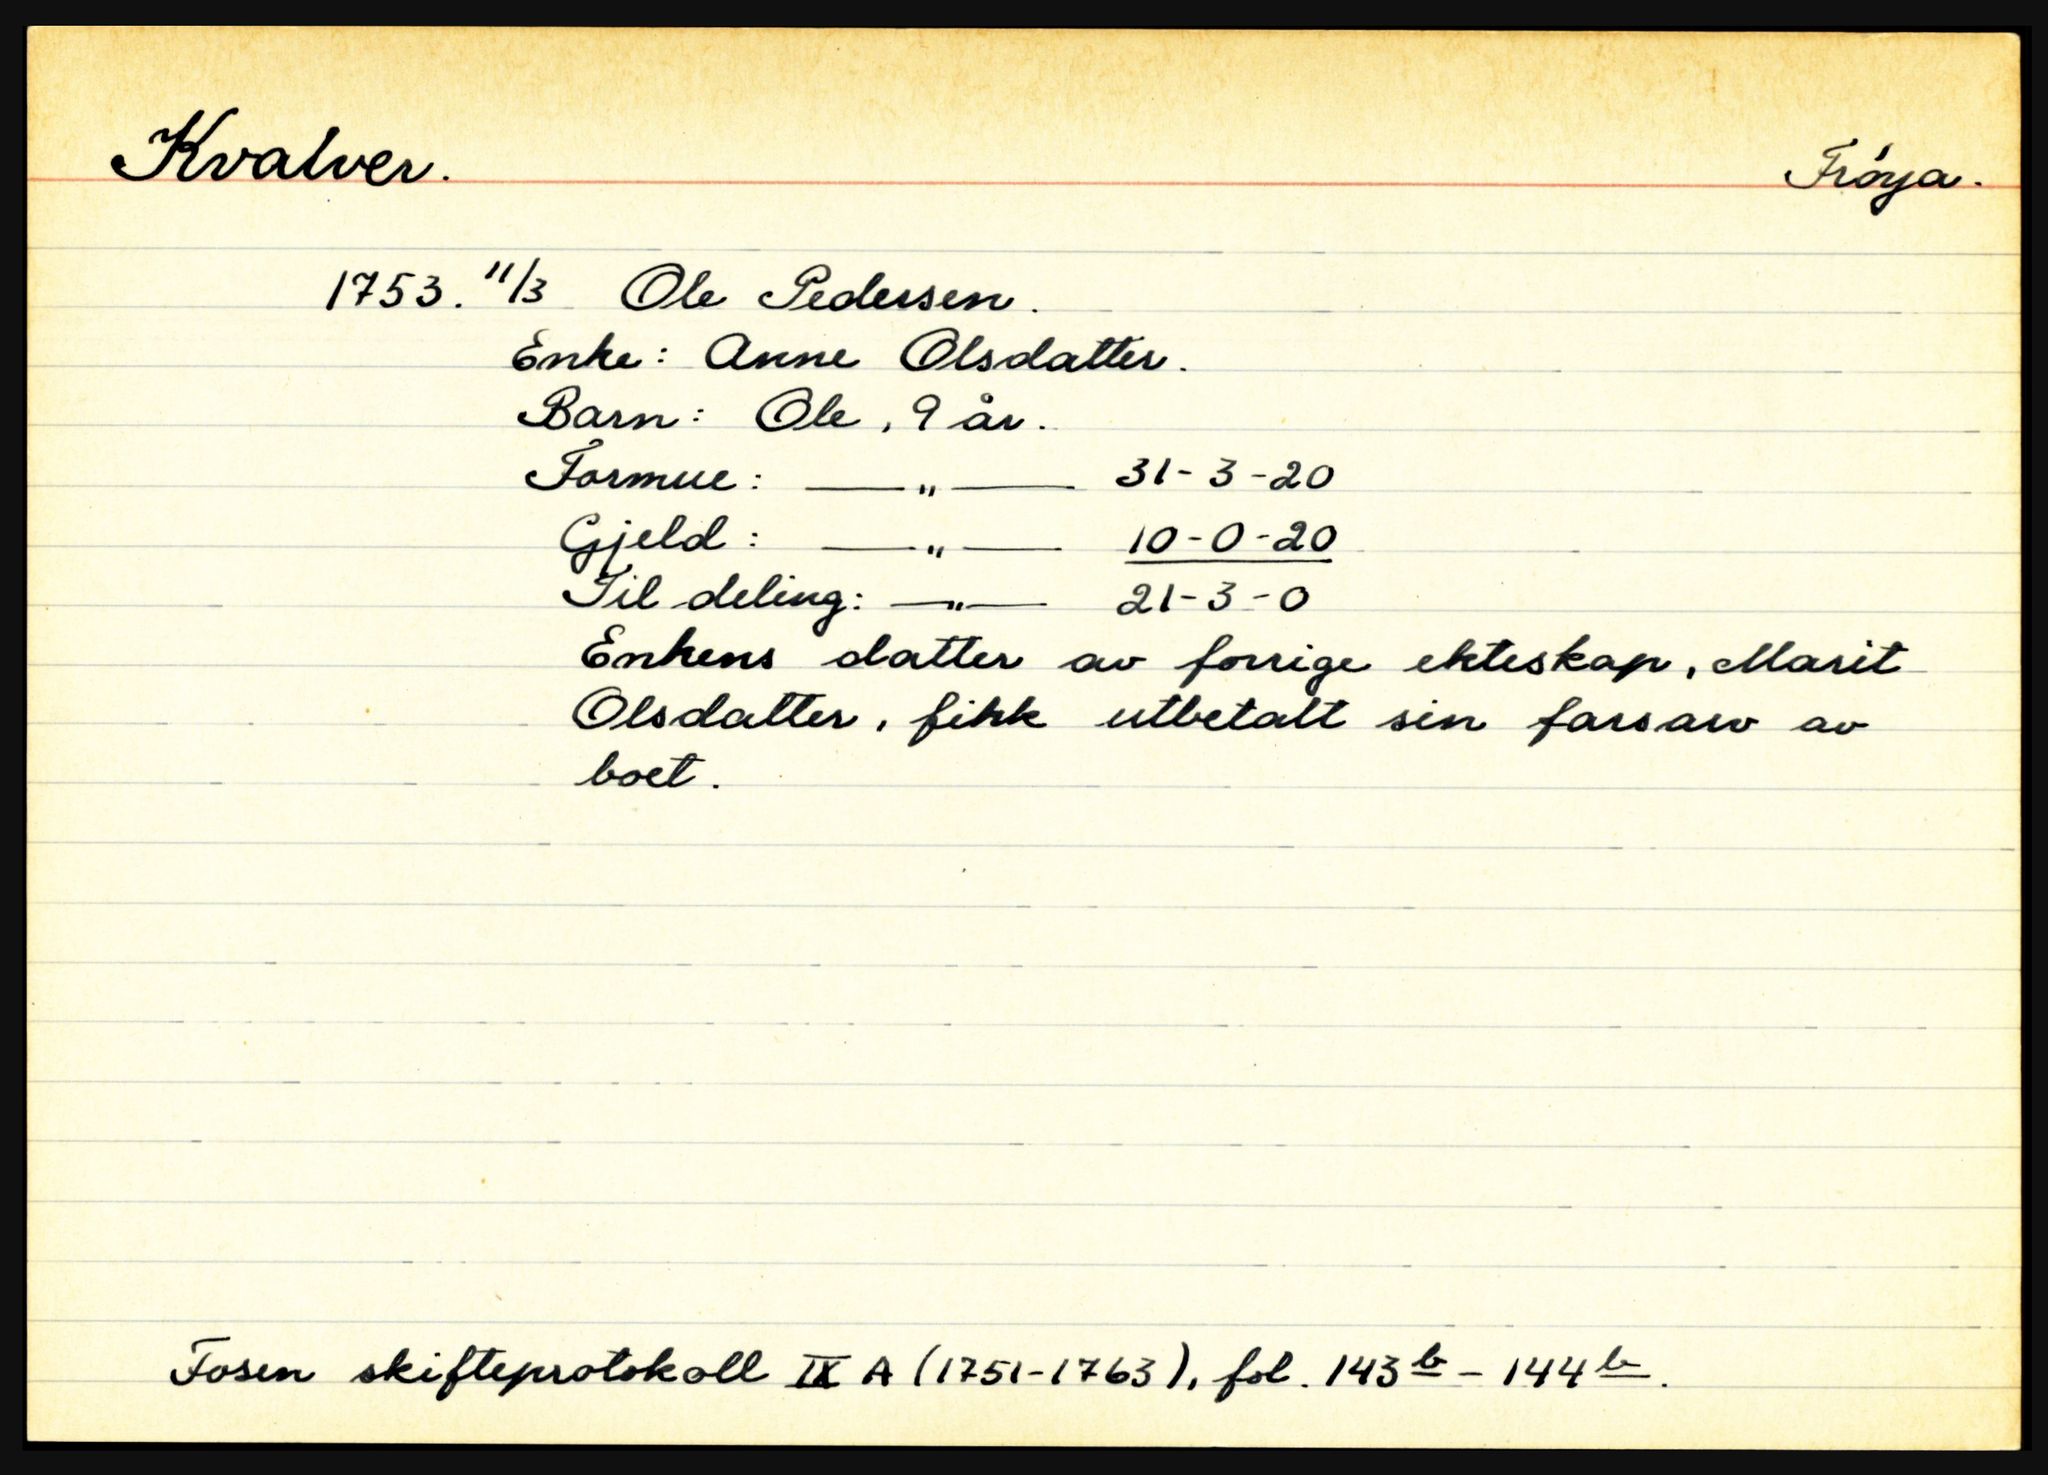 Kvalver. Frøya.
1753. 11/3 Ole Pedersen.
Enke: Anne Olsdatter.
Barn: Ole, 9 år.
Formue: —„— 31-3-20
Gjeld: —„— 10-0-20
Til deling: —„— 21-3-0
Enkens datter av forrige ekteskap, Marit
Olsdatter, fikk utbetalt sin farsarv av
boet.
Fosen skifteprotokoll IX A (1751-1763), fol. 143b - 144b.